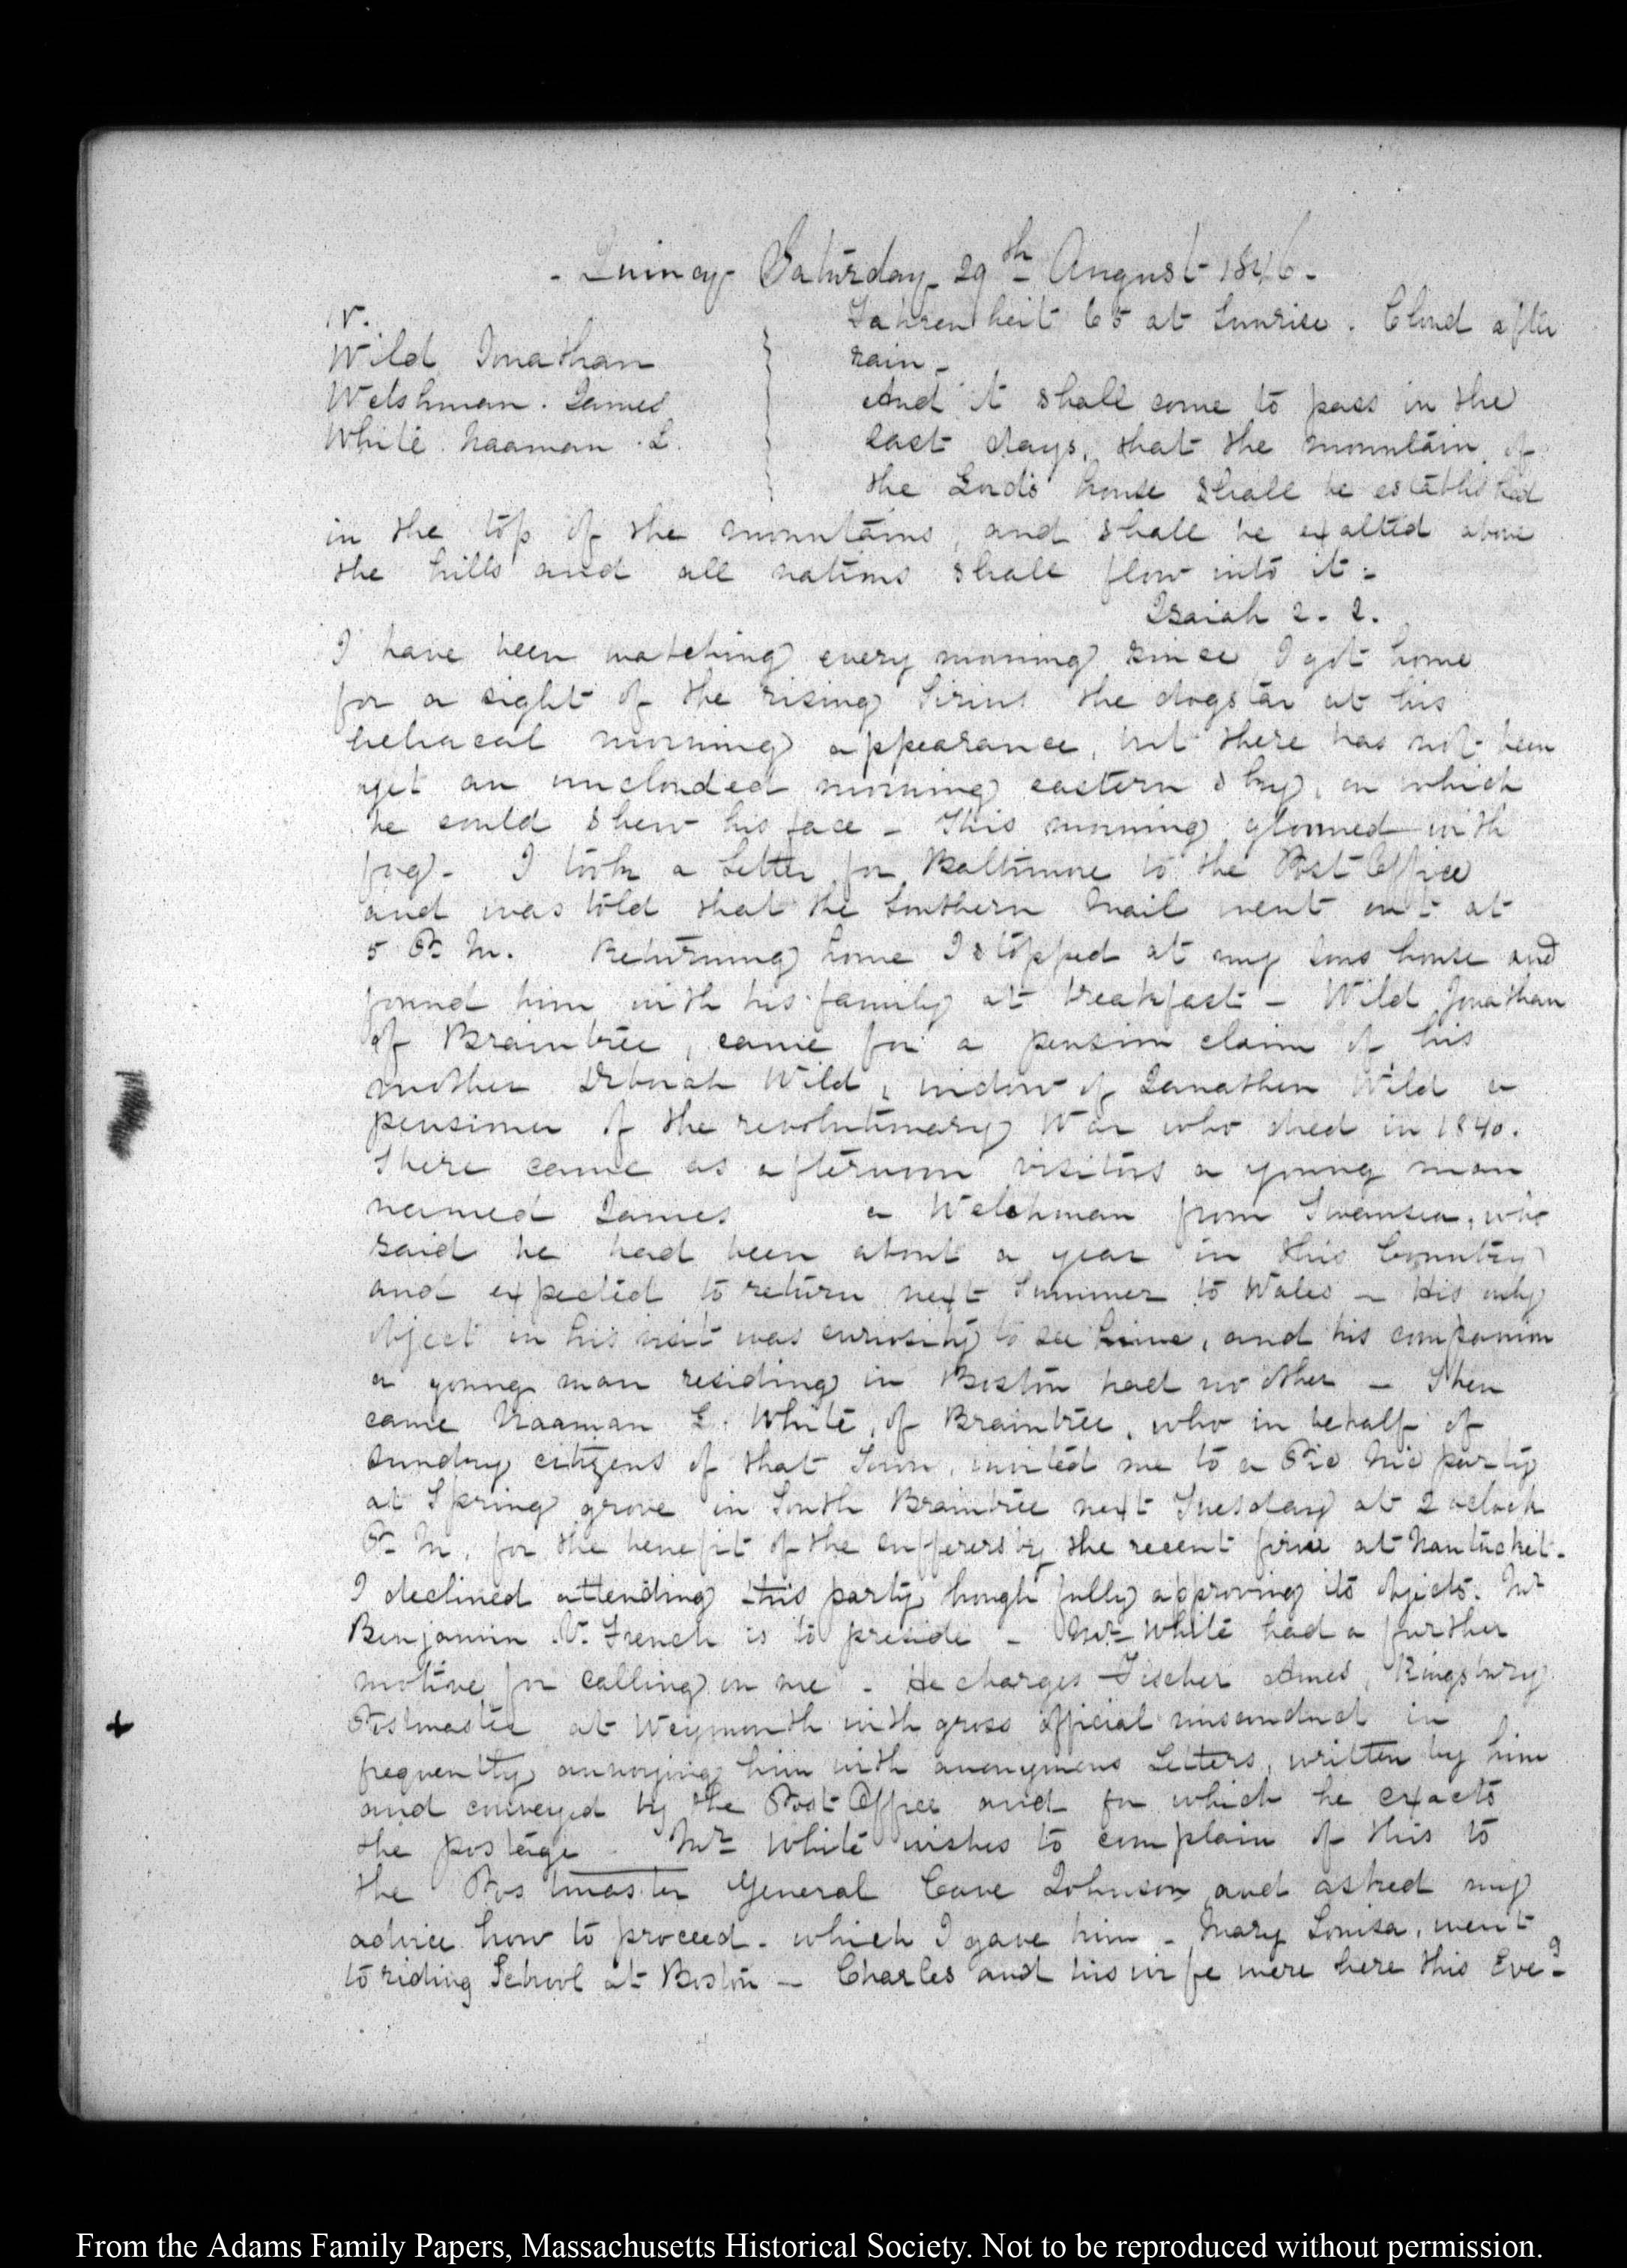 - Quincy - Saturday 29th August 1846 -
IV.
Wild Jonathan
Welshman. James
White. Naaman. L.
Fahrenheit 65 at Sunrise. Cloud after
rain -
And it shall come to pass in the
last days, that the mountain of
the Lord's house shall be established
in the top of the mountains, and shall be exalted above
the hills and all nations shall flow into it -
Isaiah 2. 2.
I have been watching every morning since I got home
for a sight of the rising Sirius the dogstar at his
heliacal morning appearance, but there has not been
yet an unclouded morning eastern sky, on which
he could shew his face - This morning gloomed with
fog - I took a Letter for Baltimore to the Post Office
and was told that the Southern Mail went out at
5 P. M. Returning home I stopped at my Sons house and
found him with his family at breakfast - Wild Jonathan
of Braintree, came for a pension claim of his
mother Deborah Wild, widow of Jonathan Wild a
pensioner of the revolutionary War who died in 1840.
There came as afternoon visitors a young man
named James a Welchman from Swansea, who
said he had been about a year in this Country
and expected to return next Summer to Wales - His only
object in his visit was curiosity to see me, and his companion
a young man residing in Boston had no other - Then
came Naaman L. White, of Braintree, who in behalf of
sundry citizens of that Town, invited me to a Pic Nic party
at Spring grove in South Braintree next Tuesday at 2 oclock
P. M. for the benefit of the sufferers by the recent fire at Nantucket.
I declined attending this party though fully approving its objects. Mr
Benjamin V. French is to preside - Mr White had a further
motive for calling on me - He charges Fischer Ames, Kingsbury
Postmaster at Weymouth with gross official misconduct in
frequently annoying him with anonymous Letters, written by him
and conveyed by the Post Office and for which he exacts
the postage. Mr White wishes to complain of this to
the Postmaster General Cave Johnson and asked my
advice how to proceed - which I gave him - Mary Louisa, went
to riding School at Boston - Charles and his wife were here this Eveg
From the Adams Family Papers, Massachusetts Historical Society. Not to be reproduced without permission.